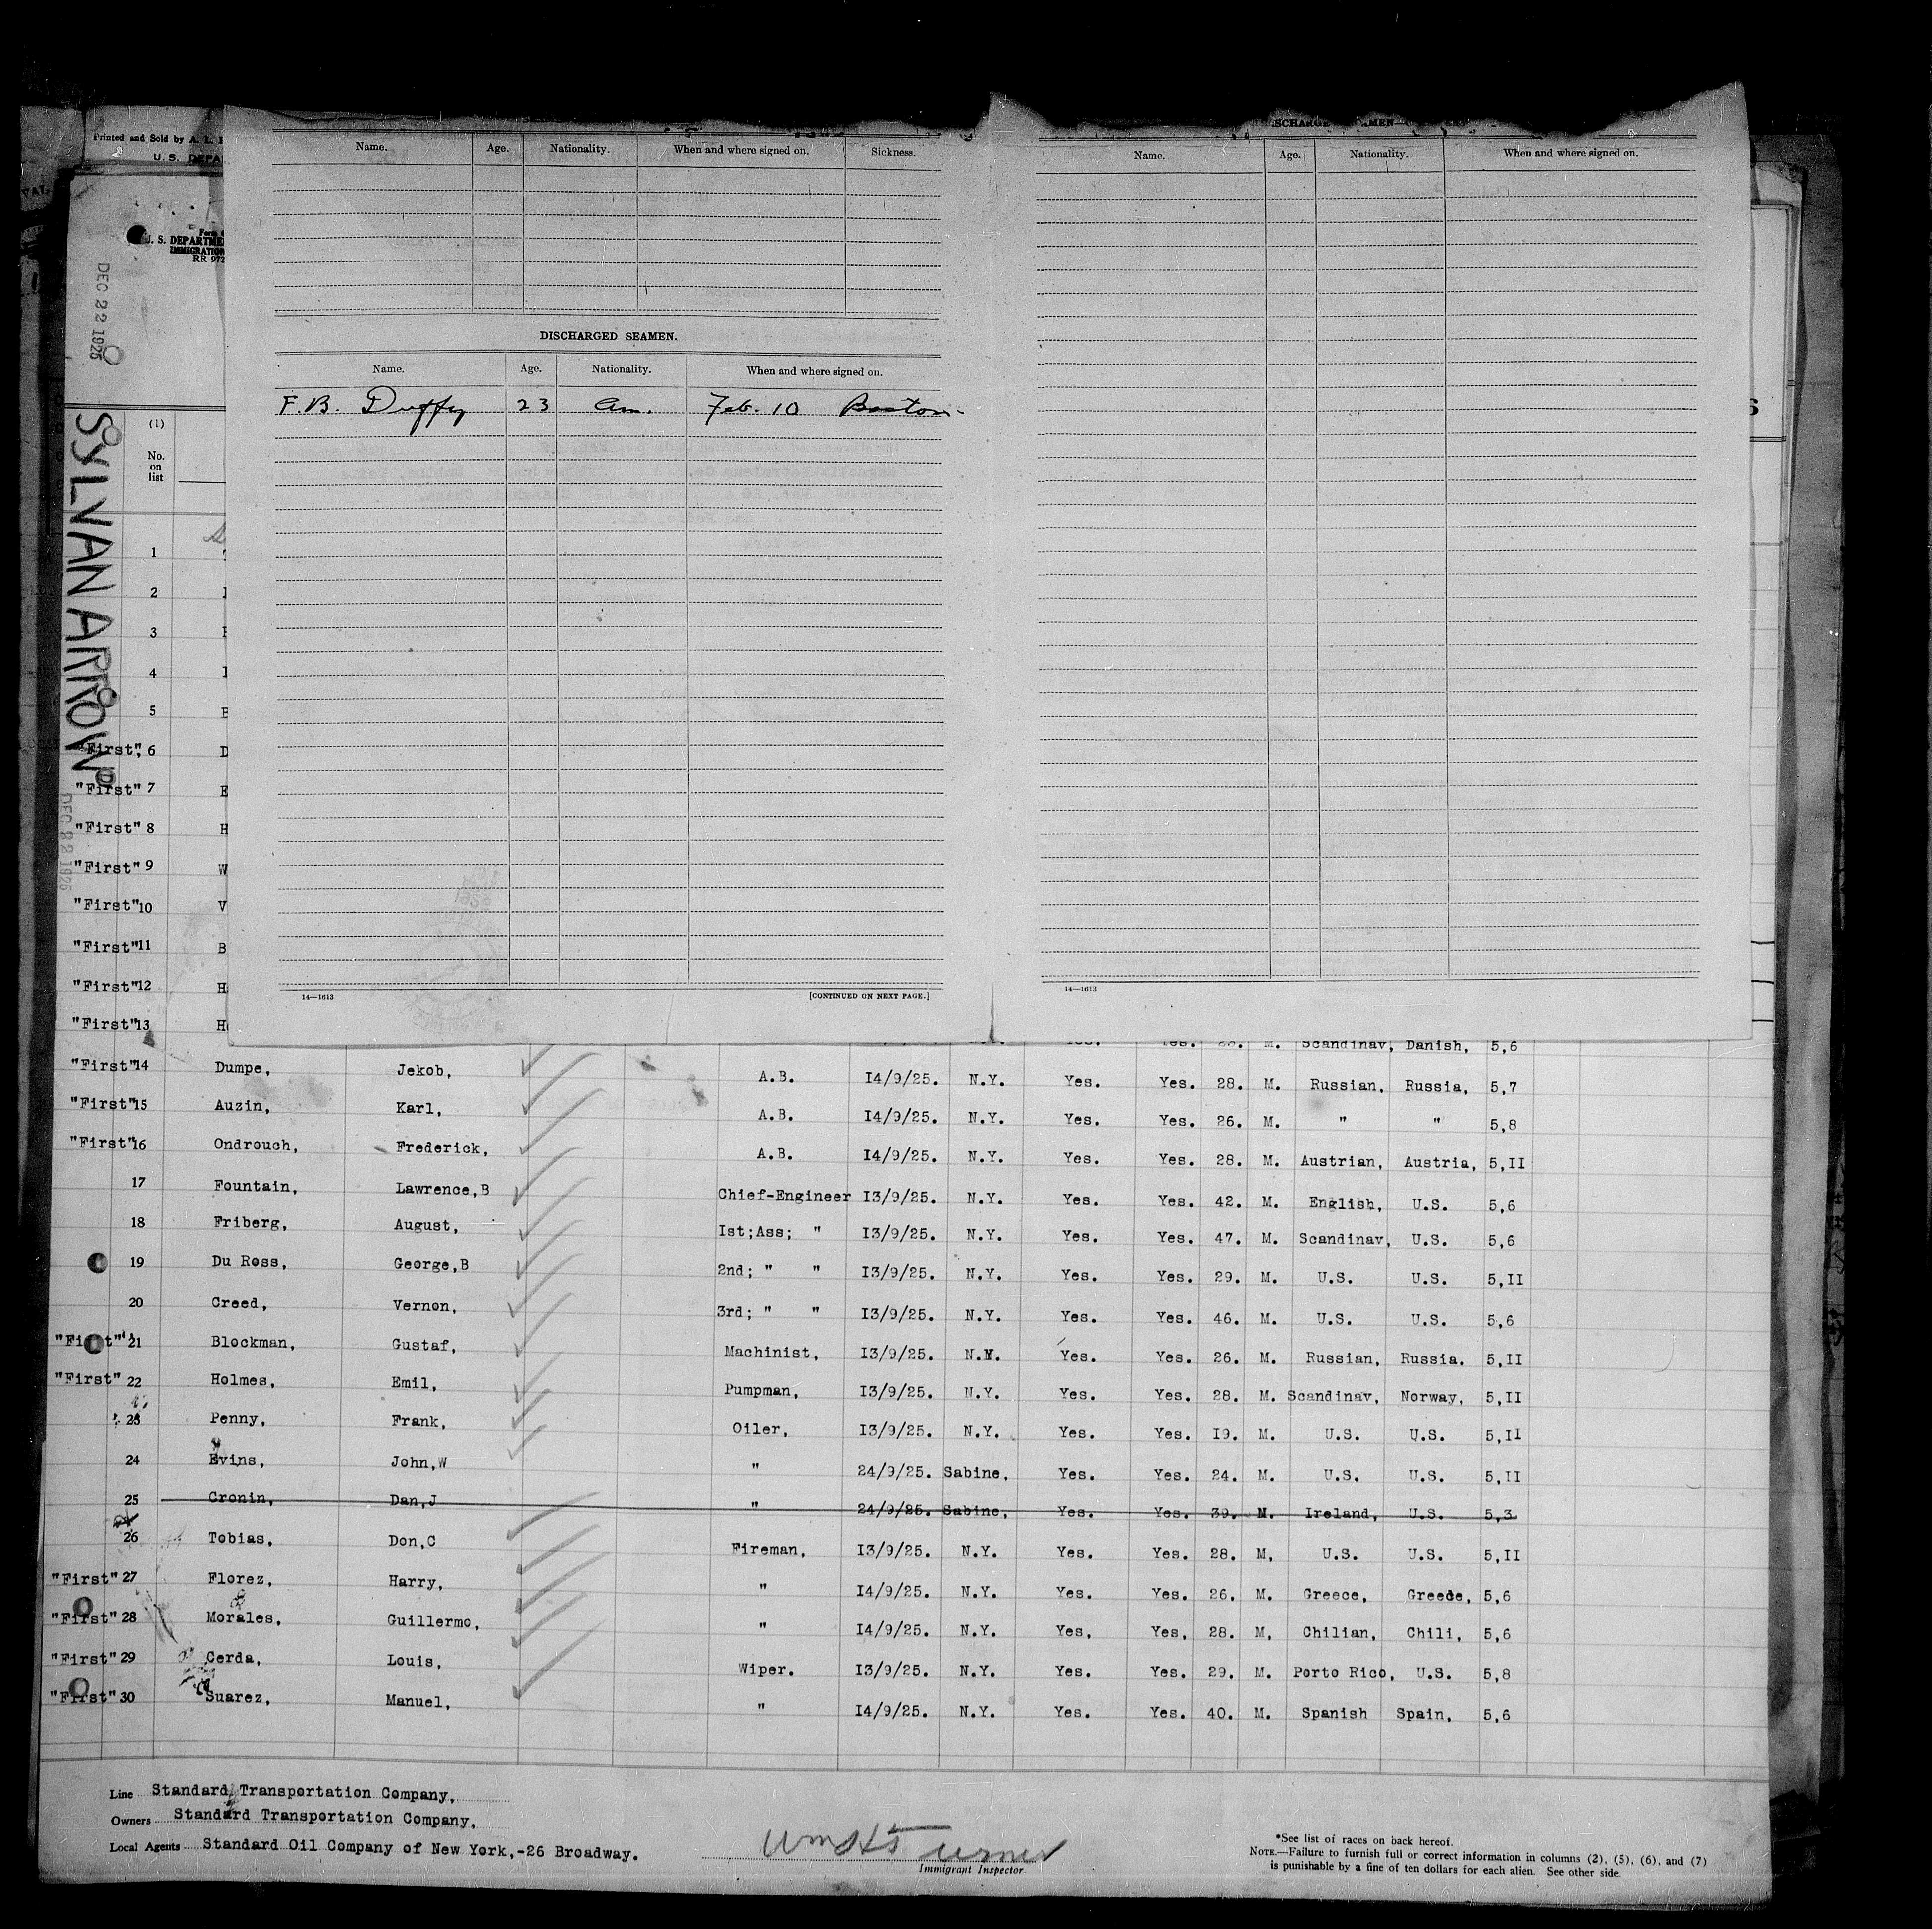 Printed and Sold by A. L.
U. S. DEPA
U. S. DEPARTME
IMMIGRATION
DEC 22 1925
SYLVAN ARROW
DEC 22 1925
Name. Age. Nationality. When and where signed on. Sickness.
DISCHARGED SEAMEN.
Name. Age. Nationality. When and where signed on.
F.B. Duffy 23 Am. Feb. 10 Boston
14—1613 [CONTINUED ON NEXT PAGE.]
Name. Age. Nationality. When and where signed on.
14—1613
(1)
No. on list
1
2
3
4
5
"First", 6 D
"First" 7 E
"First" 8 H
"First" 9 W
"First" 10 V
"First" 11 B
"First" 12 H
"First" 13 H M. Scandinav, Danish, 5,6
"First" 14 Dumpe, Jekob, A.B. I4/9/25. N.Y. Yes. Yes. 28. M. Russian, Russia, 5,7
"First" 15 Auzin, Karl, A.B. I4/9/25. N.Y. Yes. Yes. 26. M. " " 5,8
"First" 16 Ondrouch, Frederick, A.B. I4/9/25. N.Y. Yes. Yes. 28. M. Austrian, Austria, 5,II
17 Fountain, Lawrence,B Chief-Engineer I3/9/25. N.Y. Yes. Yes. 42. M. English, U.S. 5,6
18 Friberg, August, Ist;Ass; " I3/9/25. N.Y. Yes. Yes. 47. M. Scandinav, U.S. 5,6
19 Du Ross, George,B 2nd; " " I3/9/25. N.Y. Yes. Yes. 29. M. U.S. U.S. 5,II
20 Creed, Vernon, 3rd; " " I3/9/25. N.Y. Yes. Yes. 46. M. U.S. U.S. 5,6
"First" 21 Blockman, Gustaf, Machinist, I3/9/25. N.Y. Yes. Yes. 26. M. Russian, Russia. 5,II
"First" 22 Holmes, Emil, Pumpman, I3/9/25. N.Y. Yes. Yes. 28. M. Scandinav, Norway, 5,II
23 Penny, Frank, Oiler, I3/9/25. N.Y. Yes. Yes. I9. M. U.S. U.S. 5,II
24 Evins, John,W " 24/9/25. Sabine, Yes. Yes. 24. M. U.S. U.S. 5,II
25 Cronin, Dan,J " 24/9/25. Sabine, Yes. Yes. 39. M. Ireland, U.S. 5,3
26 Tobias, Don,C Fireman, I3/9/25. N.Y. Yes. Yes. 28. M, U.S. U.S. 5,II
"First" 27 Florez, Harry, " I4/9/25. N.Y. Yes. Yes. 26. M. Greece, Greece, 5,6
"First" 28 Morales, Guillermo, " I4/9/25. N.Y. Yes, Yes, 28. M, Chilian, Chili, 5,6
"First" 29 Cerda, Louis, Wiper. I3/9/25. N.Y. Yes. Yes. 29. M. Porto Rico, U.S. 5,8
"First" 30 Suarez, Manuel, " I4/9/25. N.Y. Yes. Yes. 40. M. Spanish Spain, 5,6
Line Standard Transportation Company,
Owners Standard Transportation Company,
Local Agents Standard Oil Company of New York,-26 Broadway.
Wm H Turner
Immigrant Inspector
*See list of races on back hereof.
NOTE.—Failure to furnish full or correct information in columns (2), (5), (6), and (7)
is punishable by a fine of ten dollars for each alien. See other side.